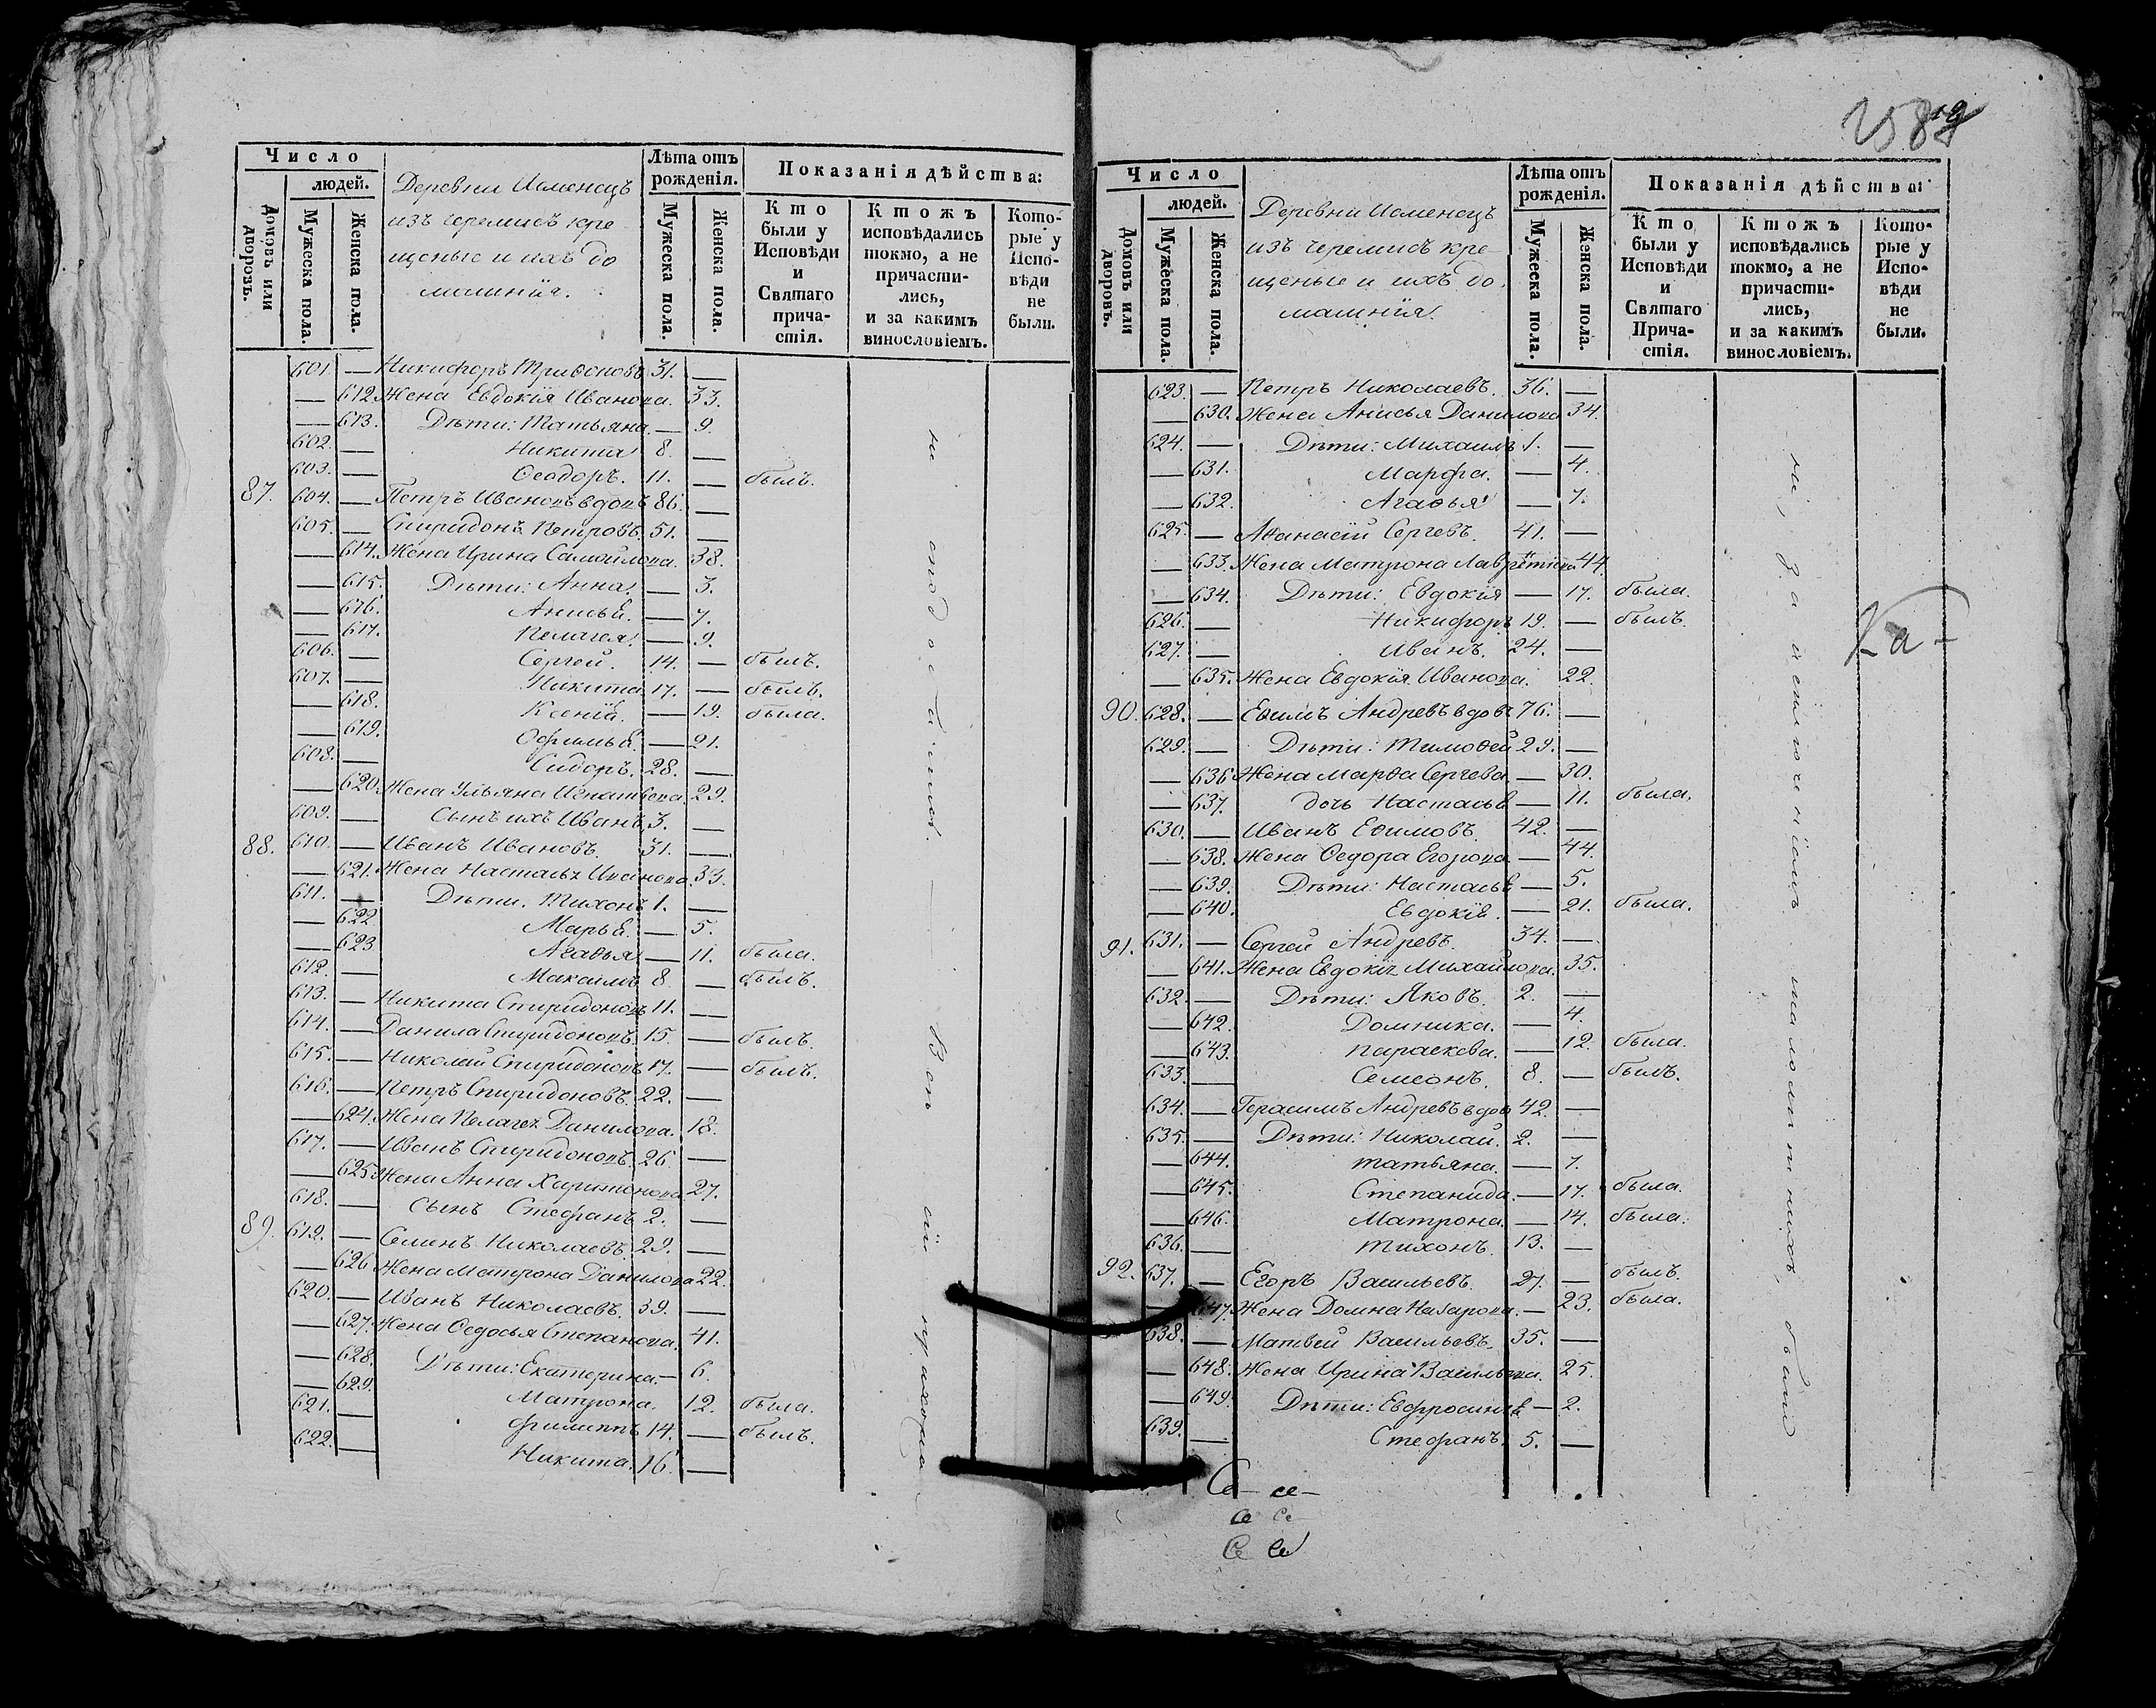 Число
людей.
Домовъ или дворовъ.
Мужеска пола.
Женска пола.
Деревни Исменецъ
изъ черемисъ кре
щеные и ихъ до
машнія.
Лѣта отъ рожденія.
Мужеска пола.
Женска пола.
Показанія дѣйства:
Кто были у Исповѣди и Святаго причастія.
Ктожъ исповѣдались токмо, а не причастились, и за какимъ винословіемъ.
Которые у Исповѣди не были.
601. — Никифоръ Триѳоновъ 31. —
— 612. Жена Евдокія Иванова. 33.
— 613. Дѣти: Татьяна. — 9.
602. — Никита 8. —
603. — Ѳеодоръ. 11. — былъ.
87. 604. — Петръ Ивановъ вдовъ 86. —
605. — Спиридонъ Петровъ. 51. —
— 614. Жена Ирина Самойлова. 38.
— 615. Дѣти: Анна. — 3.
— 616. Анисья. — 7.
— 617. Пелагея. — 9.
606. — Сергей. 14. — былъ.
607. — Никита 17. — былъ.
— 618. Ксенія. — 19. была.
— 619. Офимья. — 21.
608. — Сидоръ. 28. —
— 620. Жена Ульяна Игнатьева. 29.
609. — Сынъ ихъ Иванъ 3. —
88. 610. — Иванъ Ивановъ. 31. —
— 621. Жена Настасья Иванова. 33.
611. — Дѣти. Тихонъ 1. —
— 622 Марья. — 5.
— 623 Агаѳья. — 11. была.
612. — Максимъ 8. — былъ.
613. — Никита Спиридоновъ 11. —
614. — Данила Спиридоновъ. 15. — былъ.
615. — Николай Спиридоновъ 17. — былъ.
616. — Петръ Спиридоновъ. 22. —
— 624. Жена Пелагея Данилова. 18.
617. — Иванъ Спиридоновъ. 26. —
— 625. Жена Анна Харитонова 27.
618. — Сынъ Стефанъ 2. —
89. 619. — Семенъ Николаевъ. 29. —
— 626 Жена Матрона Данилова 22.
620. — Иванъ Николаевъ. 39. —
— 627. Жена Ѳедосья Степанова. 41.
— 628. Дѣти: Екатерина. — 6.
— 629. Матрона. 12. была.
621. — Филиппъ 14. — былъ.
622. — Никита. 16. —
не сподобился. — Вси сіи прихожа
258
Число
людей.
Домовъ или дворовъ.
Мужеска пола.
Женска пола.
Деревни Исменецъ
изъ черемисъ кре
щеные и ихъ до
машнія.
Лѣта отъ рожденія.
Мужеска пола.
Женска пола.
Показанія дѣйства:
Кто были у Исповѣди и Святаго Причастія.
Ктожъ исповѣдались токмо, а не причастились, и за какимъ винословіемъ.
Которые у Исповѣди не были.
623. — Петръ Николаевъ. 36. —
— 630. Жена Анисья Данилова 34.
624. — Дѣти: Михаилъ 1. —
— 631. Марфа. — 4.
— 632. Агаѳья — 7.
625. — Аѳанасій Сергевъ. 41. —
— 633. Жена Матрона Лаврентьева 44.
— 634. Дѣти: Евдокія — 17. была.
626. — Никифоръ 19. — былъ.
627. — Иванъ. 24. —
— 635. Жена Евдокія Иванова. 22.
90. 628. — Еѳимъ Андревъ вдовъ 76. —
629. — Дѣти: Тимоѳей 29. —
— 636 Жена Марѳа Сергева — 30.
— 637. дочь Настасья — 11. была.
630. — Иванъ Еѳимовъ. 42. —
— 638. Жена Ѳедора Егорова — 44.
— 639. Дѣти: Настасья — 5.
— 640. Евдокія. — 21. была.
91. 631. — Сергей Андревъ. 34. —
— 641. Жена Евдокія Михайлова. 35.
632. — Дѣти: Яковъ. 2. —
— 642. Домника. — 4.
— 643. Параскева. — 12. была.
633. — Семеонъ. 8. — былъ.
634. — Герасимъ Андревъ вдов 42. —
635. — Дѣти: Николай. 2. —
— 644. Татьяна. — 7.
— 645. Степанида. — 17. была.
— 646. Матрона. — 14. была.
636. — Тихонъ. 13. —
92. 637. — Егоръ Васильевъ. 27. — былъ.
— 647. Жена Домна Назарова. — 23. была.
638. — Матвей Васильевъ. 35. —
— 648. Жена Ирина Васильева. 25.
— 649. Дѣти: Евфросинья — 2.
639. — Стефанъ. 5. —
не, за исключеніемъ малолѣтнихъ, было
Ка-
Се- се-
се Се
Се Се